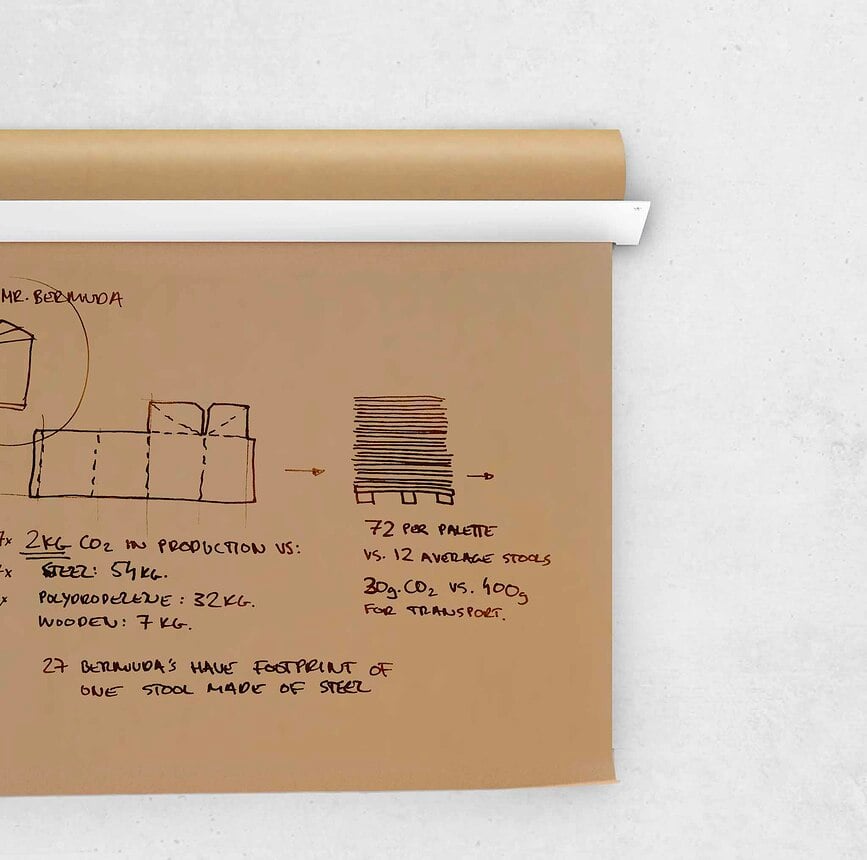 MR. BERMUDA
7x 2KG CO2 IN PRODUCTION VS:
x STEEL: 54KG.
x POLYDROPELENE: 32KG.
WOODEN: 7 KG.
27 BERMUDA'S HAVE FOOTPRINT OF
ONE STOOL MADE OF STEEL
72 PER PALETTE
VS. 12 AVERAGE STOOLS
30g. CO2 VS. 400g
FOR TRANSPORT.